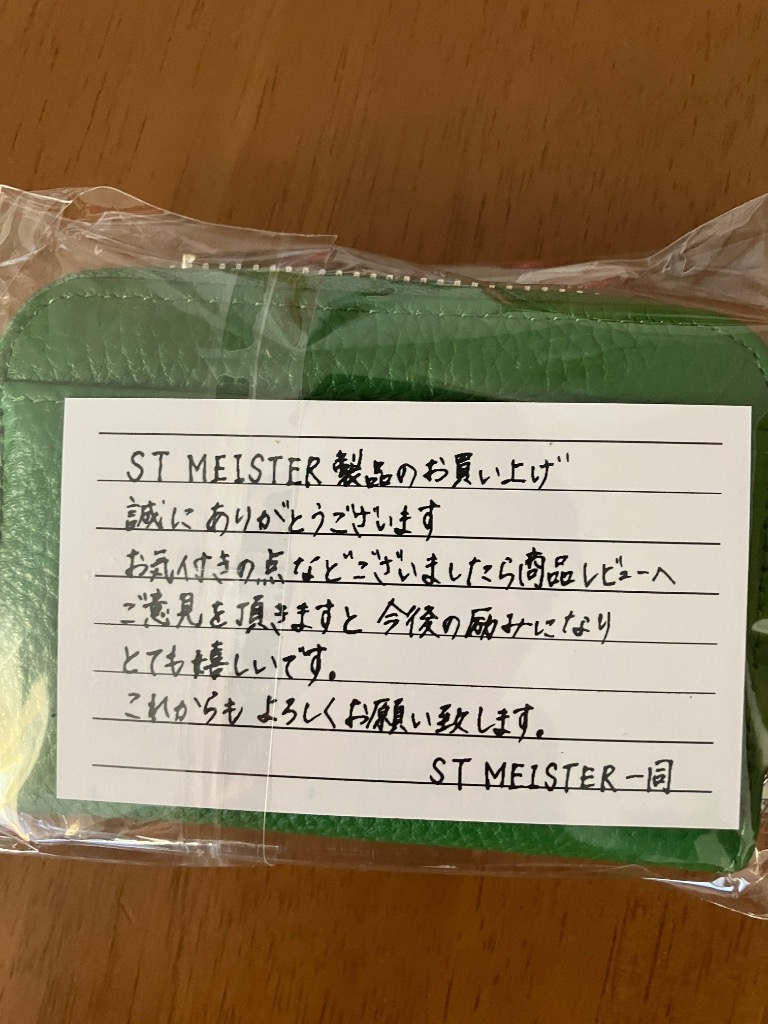 ST MEISTER 製品のお買い上げ
誠にありがとうございます
お気付きの点などございましたら商品レビューへ
ご意見を頂きますと今後の励みになり
とても嬉しいです。
これからもよろしくお願い致します。
ST MEISTER一同